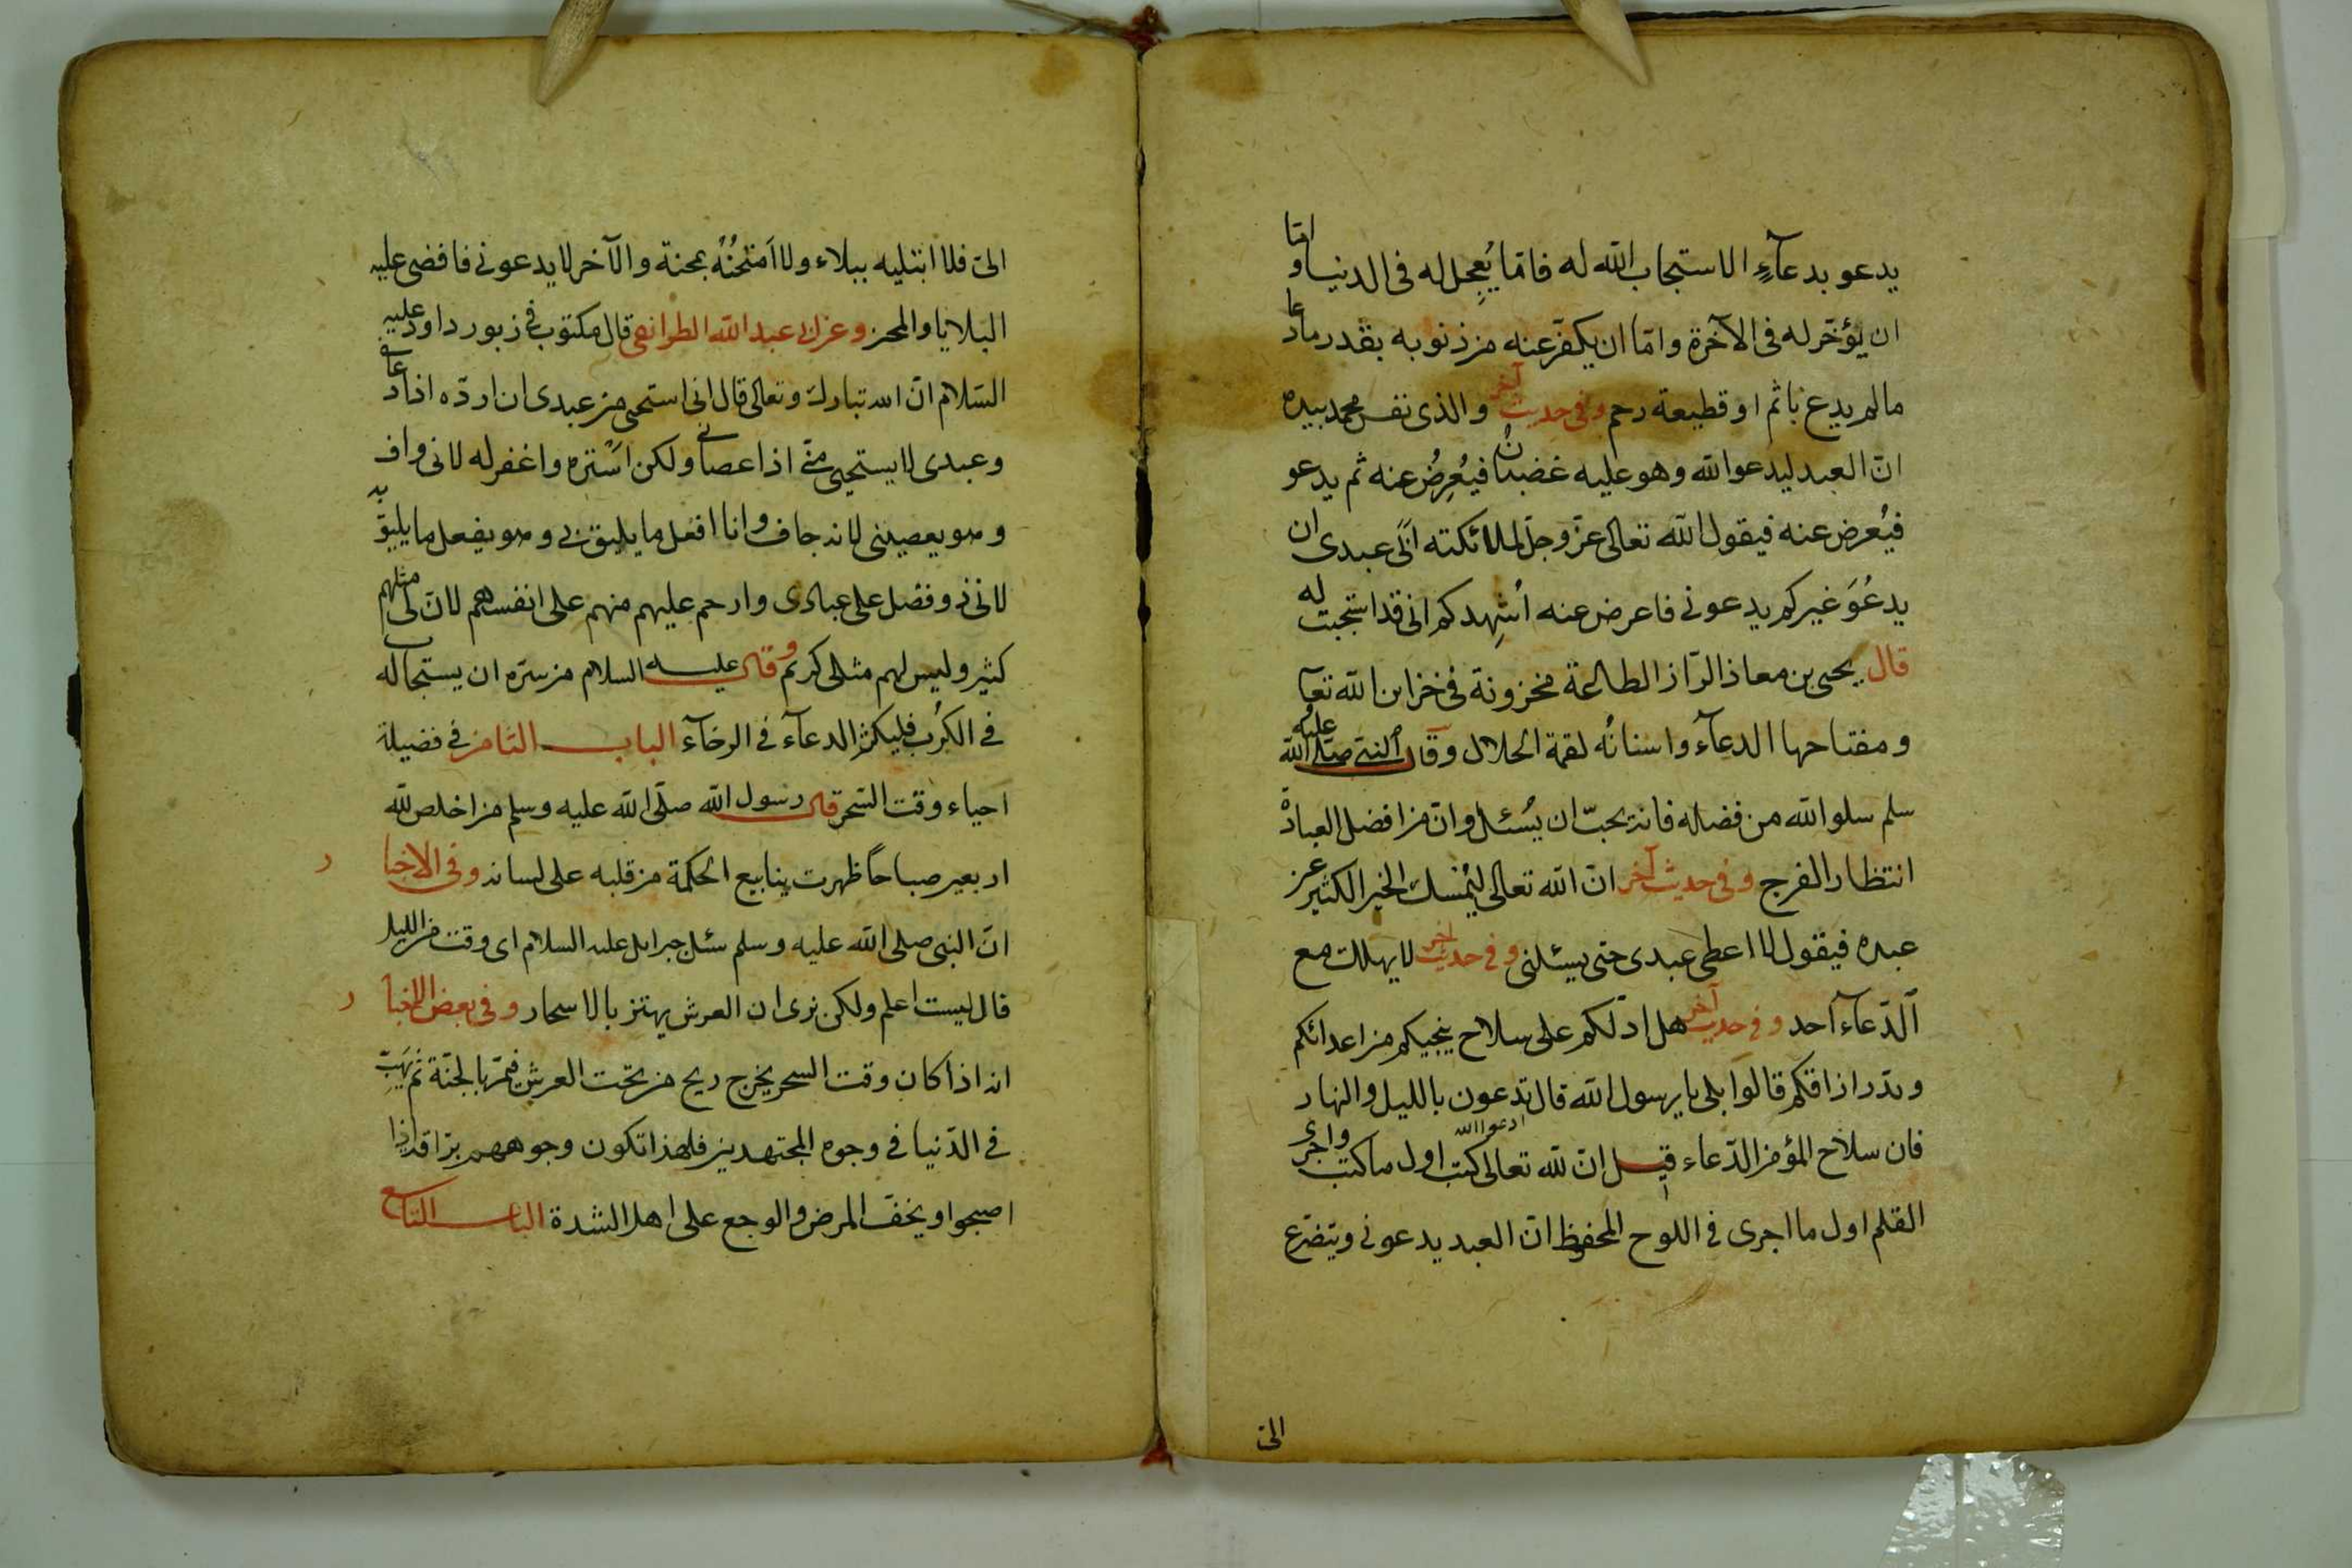 يدعو بدعآءٍ الا استجاب الله له فامّا يُعجِل له فى الدنيا وامّا
ان يؤخّر له فى الآخرة وامّا ان يكفّر عنه من ذنوبه بقدر ما دعا
مالم يدع باثم او قطيعة رحم وفى حديث آخر والذى نفس محمد بيده
انّ العبد ليدعو الله وهو عليه غضبان فيُعرِضُ عنه ثم يدعو
فيُعرض عنه فيقول الله تعالى عزّ وجلّ لملائكته ابَى عبدى ان
يدعُوَ غيركم يدعونى فاعرض عنه اُشهِدكم انى قد استجبت له
قال يحيى بن معاذ الرّاز الطاعة مخزونة فى خزاين الله تعآ
ومفتاحها الدعآء واسنانُه لقمة الحلال وقال النبى صلى الله عليه
سلم سلوا الله من فضله فانه يحبّ ان يُسئل وانّ من افضل العبادة
انتظار الفرج وفى حديث آخر انّ الله تعالى ليُمسك الخير الكثير عن
عبده فيقول لا اعطى عبدى حتى يسئلنى وفى حديث آخر لا يهلك مع
الدّعآء آحد وفى حديث آخر هل ادلّكم على سلاح ينجيكم من اعدائكم
ويدرّ ارزاقكم قالوا بلى يا رسول الله قال تدعون بالليل والنهار
فان سلاح المؤمن الدّعاء قيل انّ لله تعالى كتب اول ما كتب واجرى
ادعوا الله
القلم اول ما اجرى فى اللوح المحفوظ انّ العبد يدعونى ويتضرّع
الىّ
الىّ فلا ابتليه ببلاء ولا اَمْتَحِنُهُ بمحنة والآخر لا يدعونى فافضى عليه
البلايا والمحن وعن ابى عبد الله الطرائفى قال مكتوب فى زبور داود عليه
السّلام انّ الله تبارك وتعالى قال انى استحيى من عبدى ان اردّه اذا دعانى
وعبدى لا يستحيى منّى اذا عصانى ولكن استره واغفر له لانى واف
وهو يعصينى لانه جاف وانا افعل ما يليق بى وهو يفعل ما يليق به
لانى ذو فضل على عبادى وارحم عليهم منهم على انفسهم لانّ لى مثلهم
كثير وليس لهم مثلى كريم وقال عليه السلام من سرّه ان يستجاب له
فى الكُرَب فليكثر الدعآء فى الرخآء الباب الثامن فى فضيلة
احياء وقت السّحر قال رسول الله صلّى الله عليه وسلم من اخلص لله
اربعين صباحًا ظهرت ينابيع الحكمة من قلبه على لسانه وفى الاخبار
انّ النبى صلى الله عليه وسلم سئل جبرايل عليه السلام اى وقت من الليل
قال ليست اعلم ولكن نرى ان العرش يهتز بالاسحار وفى بعض الاخبار
انه اذا كان وقت السحر يخرج ريح من تحت العرش فتمرّ بالجنّة ثم يَهبّ
فى الدّنيا فى وجوه المجتهدين فلهذا تكون وجوههم برّاقة اذا
اصبحوا ويخفّ المرض والوجع على اهل الشدة الباب التاسع